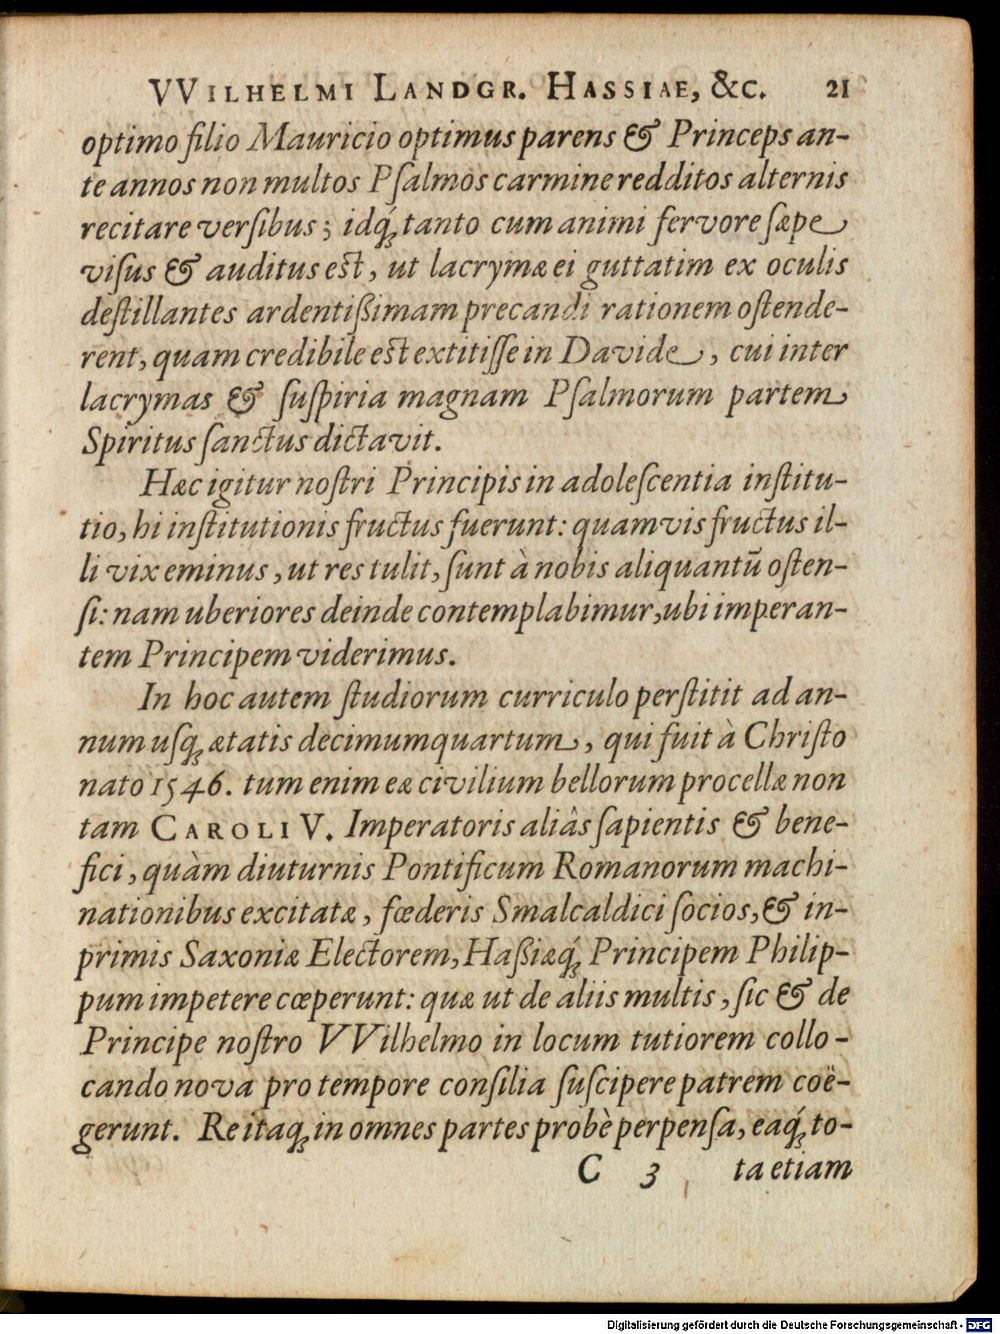 VVILHELMI LANDGR. HASSIAE, &c. 21
optimo filio Mauricio optimus parens & Princeps an-
te annos non multos Pſalmos carmine redditos alternis
recitare verſibus; idq́ꝫ tanto cum animi fervore ſæpe
viſus & auditus eſt, ut lacrymæ ei guttatim ex oculis
deſtillantes ardentißimam precandi rationem oſtende-
rent, quam credibile eſt extitiſſe in Davide, cui inter
lacrymas & ſuſpiria magnam Pſalmorum partem
Spiritus ſanctus dictavit.
Hæc igitur noſtri Principis in adoleſcentia inſtitu-
tio, hi inſtitutionis fructus fuerunt: quamvis fructus il-
li vix eminus, ut res tulit, ſunt à nobis aliquantũ oſten-
ſi: nam uberiores deinde contemplabimur, ubi imperan-
tem Principem viderimus.
In hoc autem ſtudiorum curriculo perſtitit ad an-
num uſqꝫ ætatis decimumquartum, qui fuit à Chriſto
nato 1546. tum enim eæ civilium bellorum procellæ non
tam CAROLI V. Imperatoris aliâs ſapientis & bene-
fici, quàm diuturnis Pontificum Romanorum machi-
nationibus excitatæ, fœderis Smalcaldici ſocios, & in-
primis Saxoniæ Electorem, Haßiæq́ꝫ Principem Philip-
pum impetere cœperunt: quæ ut de aliis multis, ſic & de
Principe noſtro VVilhelmo in locum tutiorem collo-
cando nova pro tempore conſilia ſuſcipere patrem coë-
gerunt. Re itaqꝫ in omnes partes probè perpenſa, eaq́ꝫ to-
C 3 ta etiam
Digitalisierung gefördert durch die Deutsche Forschungsgemeinschaft - DFG